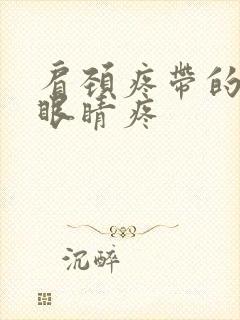 肩颈疼带的
眼睛疼
沉醉